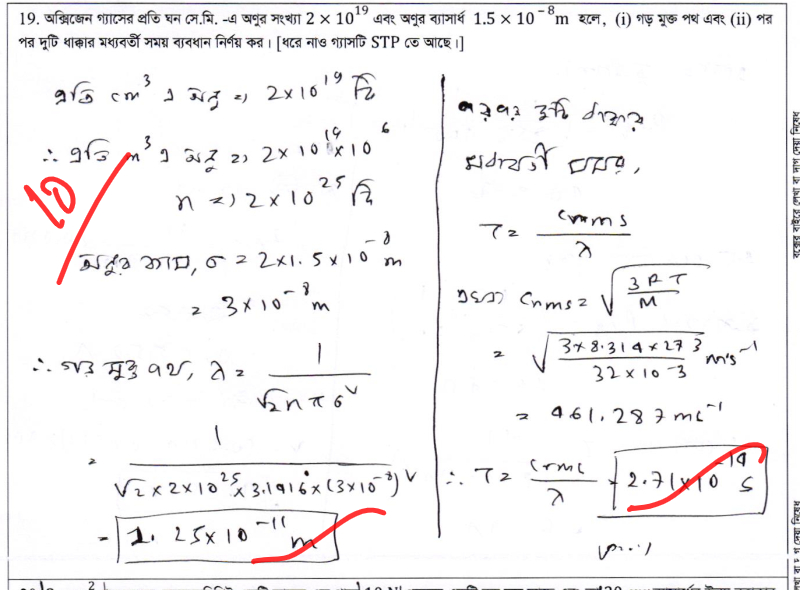 19. অক্সিজেন গ্যাসের প্রতি ঘন সে.মি. -এ অণুর সংখ্যা 2 × 10^19 এবং অণুর ব্যাসার্ধ 1.5 × 10^-8 m হলে, (i) গড় মুক্ত পথ এবং (ii) পর
পর দুটি ধাক্কার মধ্যবর্তী সময় ব্যবধান নির্ণয় কর। [ধরে নাও গ্যাসটি STP তে আছে।]
প্রতি cm^3 এ অনু => 2×10^19 টি
∴ প্রতি m^3 এ অনু => 2×10^19×10^6
n => 2×10^25 টি
10
অনুর ব্যাস, σ = 2×1.5×10^-8 m
= 3×10^-8 m
∴ গড় মুক্ত পথ, λ = 1/√2nπσ^2
= 1/√2×2×10^25×3.1416×(3×10^-8)^2
= 1.25×10^-11 m
পরপর দুটি ধাক্কার
মধ্যবর্তী সময়,
T = Crms/λ
এখন Crms = √3RT/M
= √3×8.314×273/32×10^-3 ms^-1
= 461.287 ms^-1
∴ T = Crms/λ = 2.71×10^-14 s
বক্সের বাইরে লেখা বা দাগ দেয়া নিষেধ